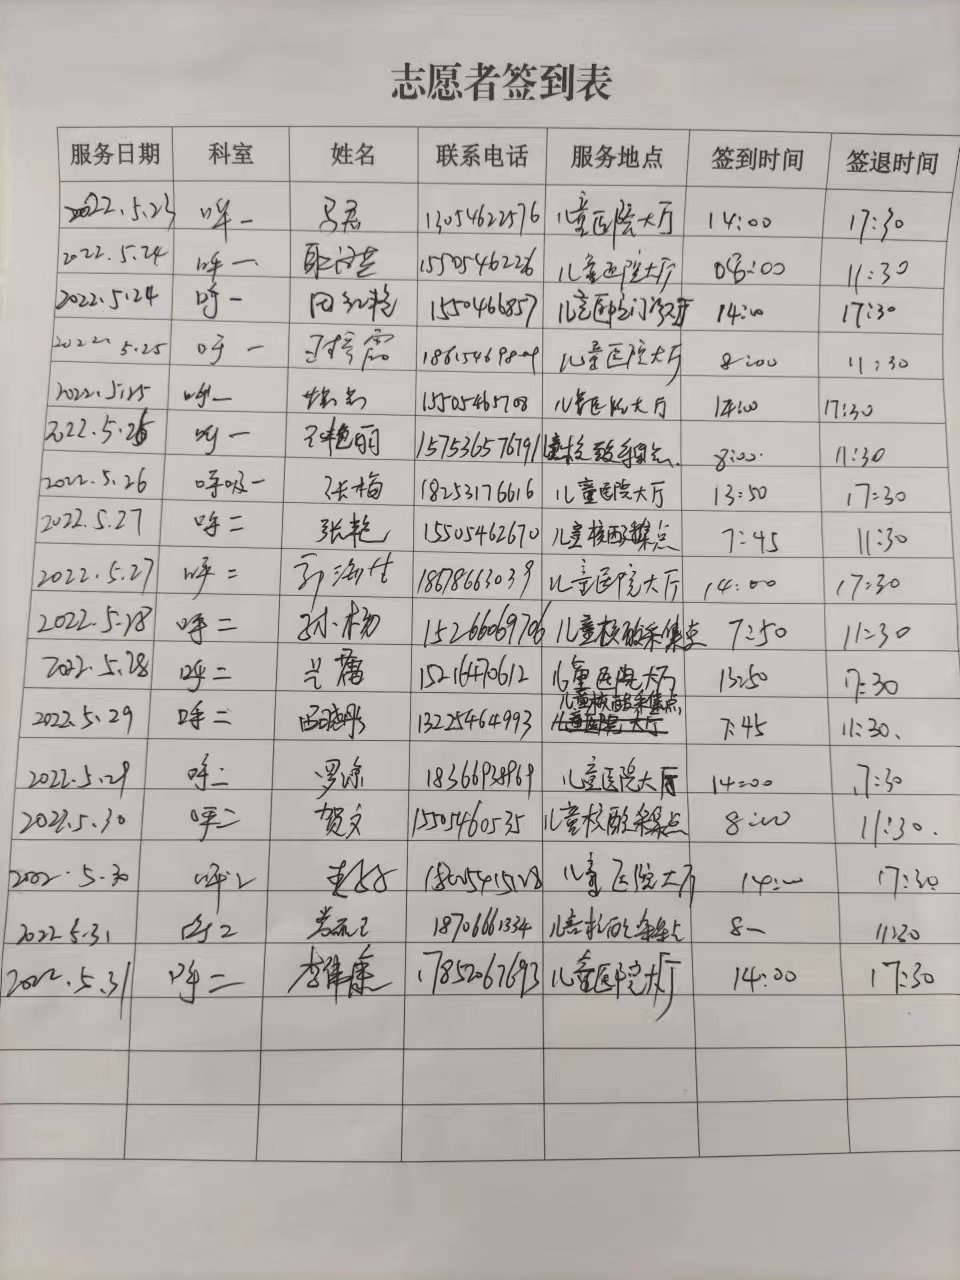 志愿者签到表
服务日期 科室 姓名 联系电话 服务地点 签到时间 签退时间
2022.5.23 呼一 马君 13054622576 儿童医院大厅 14:00 17:30
2022.5.24 呼一 15505462226 儿童医院大厅 08:00 11:30
2022.5.24 呼一 田红艳 1550466857 儿童医院门诊大厅 14:00 17:30
2022.5.25 呼一 儿童医院大厅 8:00 11:30
2022.5.25 呼一 15505465708 儿童医院大厅 14:00 17:30
2022.5.26 呼一 艳丽 157536576791 8:00 11:30
2022.5.26 呼吸一 张梅 18253176616 儿童医院大厅 13:50 17:30
2022.5.27 呼二 张艳 15505462670 儿童核酸采集点 7:45 11:30
2022.5.27 呼二 18678663039 儿童医院大厅 14:00 17:30
2022.5.28 呼二 孙杨 15266069706 儿童核酸采集点 7:50 11:30
2022.5.28 呼二 15216470612 儿童医院大厅 13:50 17:30
2022.5.29 呼二 13225464993 儿童核酸采集点 7:45 11:30.
儿童医院大厅
2022.5.29 呼二 罗琼 18366938969 儿童医院大厅 14:00 17:30
2022.5.30 呼二 贺文 15505460535 儿童核酸采集点 8:00 11:30.
2022.5.30 呼2 儿童医院大厅 14:00 17:30
2022.5.31 呼2 18706661334 儿童核酸采集点 8- 11:30
2022.5.31 呼二 李维康 17852067693 儿童医院大厅 14:00 17:30